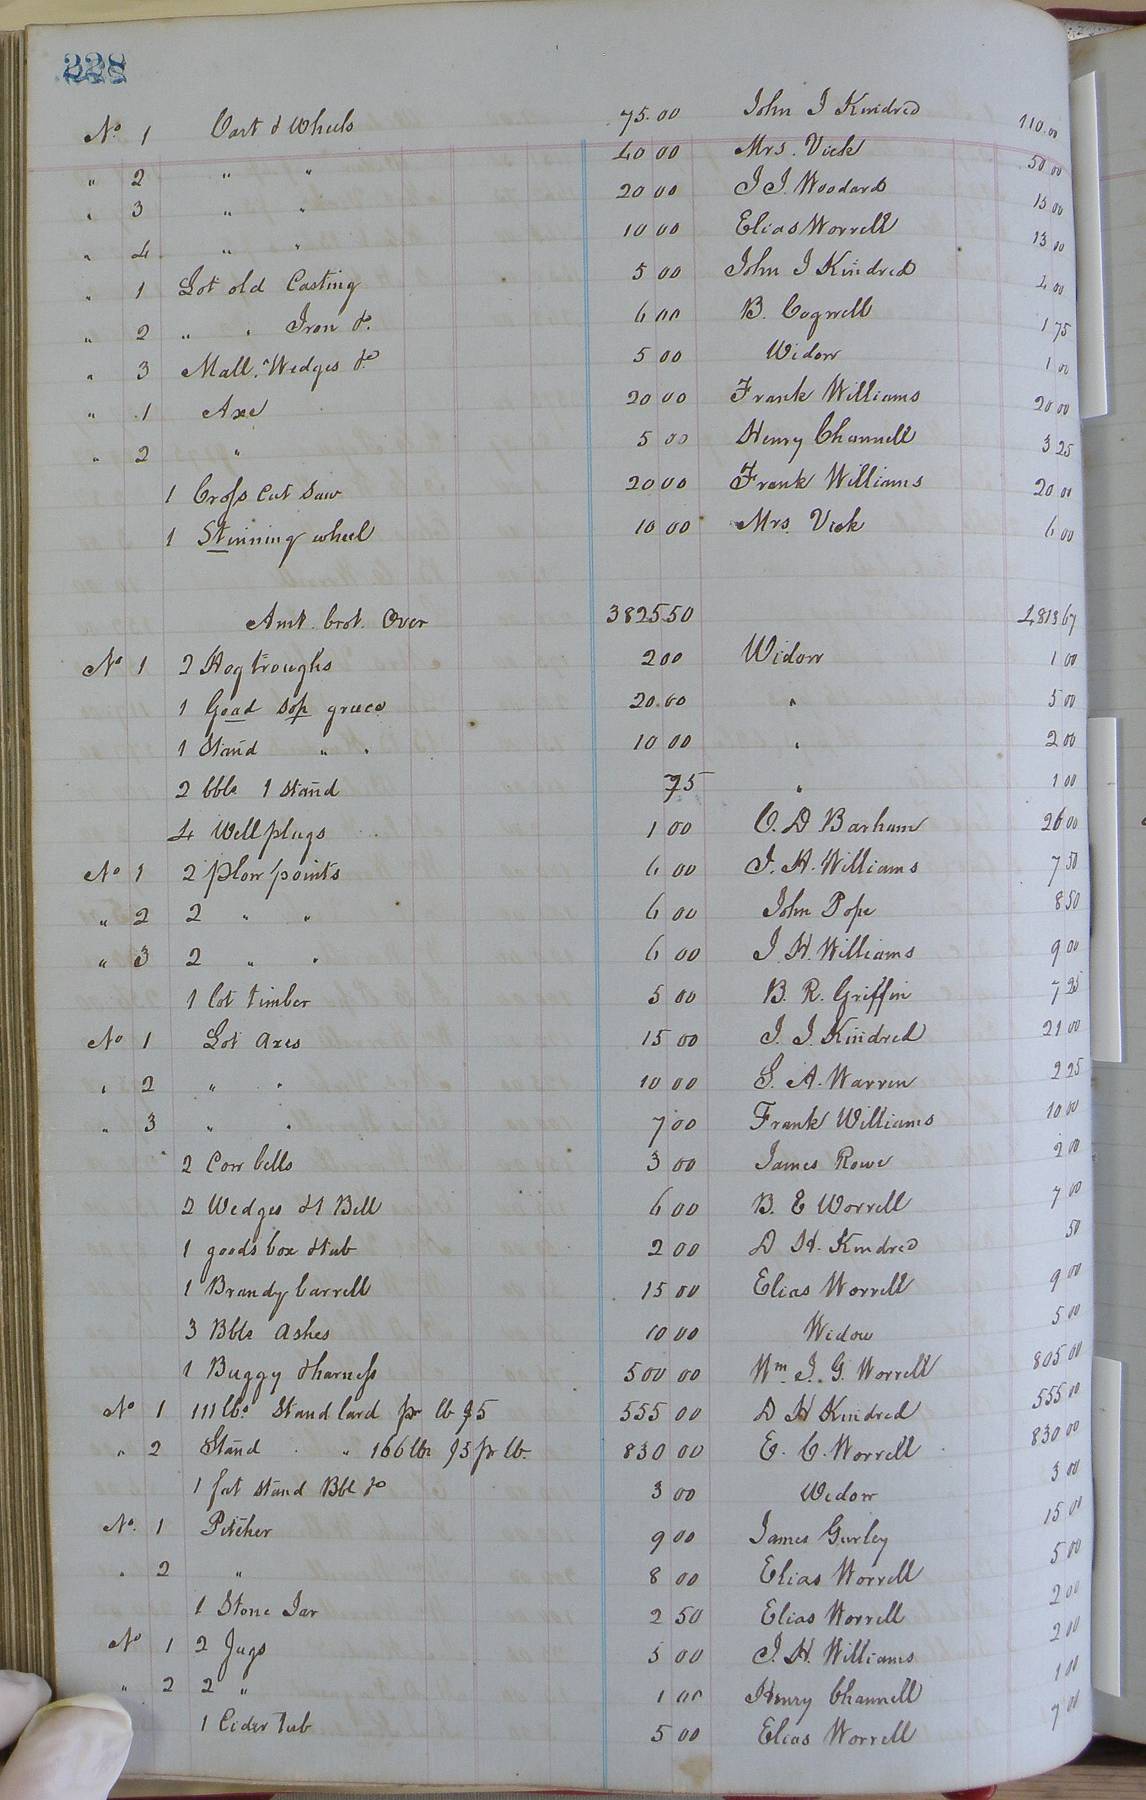 228
No 1 Cart & Wheels 75.00 John J Kindred 110.00
" 2 " " 40 00 Mrs. Vick 50 00
" 3 " " 20 00 J J. Woodard 15 00
" 4 " " 10 00 Elias Worrell 13 00
" 1 Lot old Casting 5 00 John J Kindred 4 00
" 2 " " Iron &c. 6 00 B. Cogwell 1 75
" 3 Mall, Wedges &c 5 00 Widow 1 00
" 1 Axe 20 00 Frank Williams 20 00
" 2 " 5 00 Henry Channell 3 25
1 Cross Cut Saw 20 00 Frank Williams 20 00
1 Stinning wheel 10 00 Mrs. Vick 6 00
Amt. brot. Over 3825.50 4813 67
No 1 2 Hog troughs 2 00 Widow 1 00
1 Goad sop greece 20.00 " 5 00
1 Stand " " 10 00 " 2 00
2 bbls 1 Stand 75 " 1 00
4 Well plugs 1 00 C. D Barham 26 00
No 1 2 plow points 6 00 J. H. Williams 7 50
" 2 2 " " 6 00 John Pope 8 50
" 3 2 " " 6 00 J. H. Williams 9 00
1 lot timber 5 00 B. R. Griffin 7 25
No 1 Lot axes 15 00 J. J. Kindred 21 00
" 2 " " 10 00 S. A. Warren 2 25
" 3 " " 7 00 Frank Williams 10 00
2 Cow bells 3 00 James Rowe 2 00
2 Wedges &1 Bell 6 00 B. E Worrell 7 00
1 goods box &tub 2 00 D H. Kindred 50
1 Brandy barrell 15 00 Elias Worrell 9 00
3 Bbls Ashes 10 00 Widow 5 00
1 Buggy &harness 500 00 Wm J. G. Worrell 805 00
No 1 111 lbs Stand lard pr lb $5 555 00 D H Kindred 555 00
" 2 Stand " " 166 lbs $5 pr lb. 830 00 E. C. Worrell 830 00
1 fat stand Bbl &c 3 00 Widow 3 00
No. 1 Pitcher 9 00 James Gurley 15 00
" 2 " 8 00 Elias Worrell 5 00
1 Stone Jar 2 50 Elias Worrell 2 00
No 1 2 Jugs 5 00 J. H. Williams 2 00
" 2 2 " 1 00 Henry Channell 1 00
1 Cider Tub 5 00 Elias Worrell 7 00